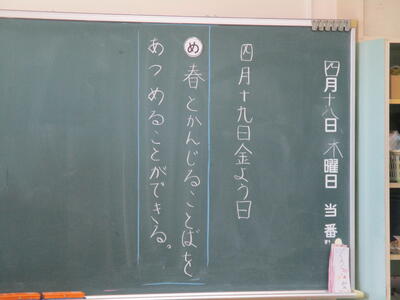 四月十八日 木曜日 当番
四月十九日金よう日
め 春とかんじることばを
あつめることができる。